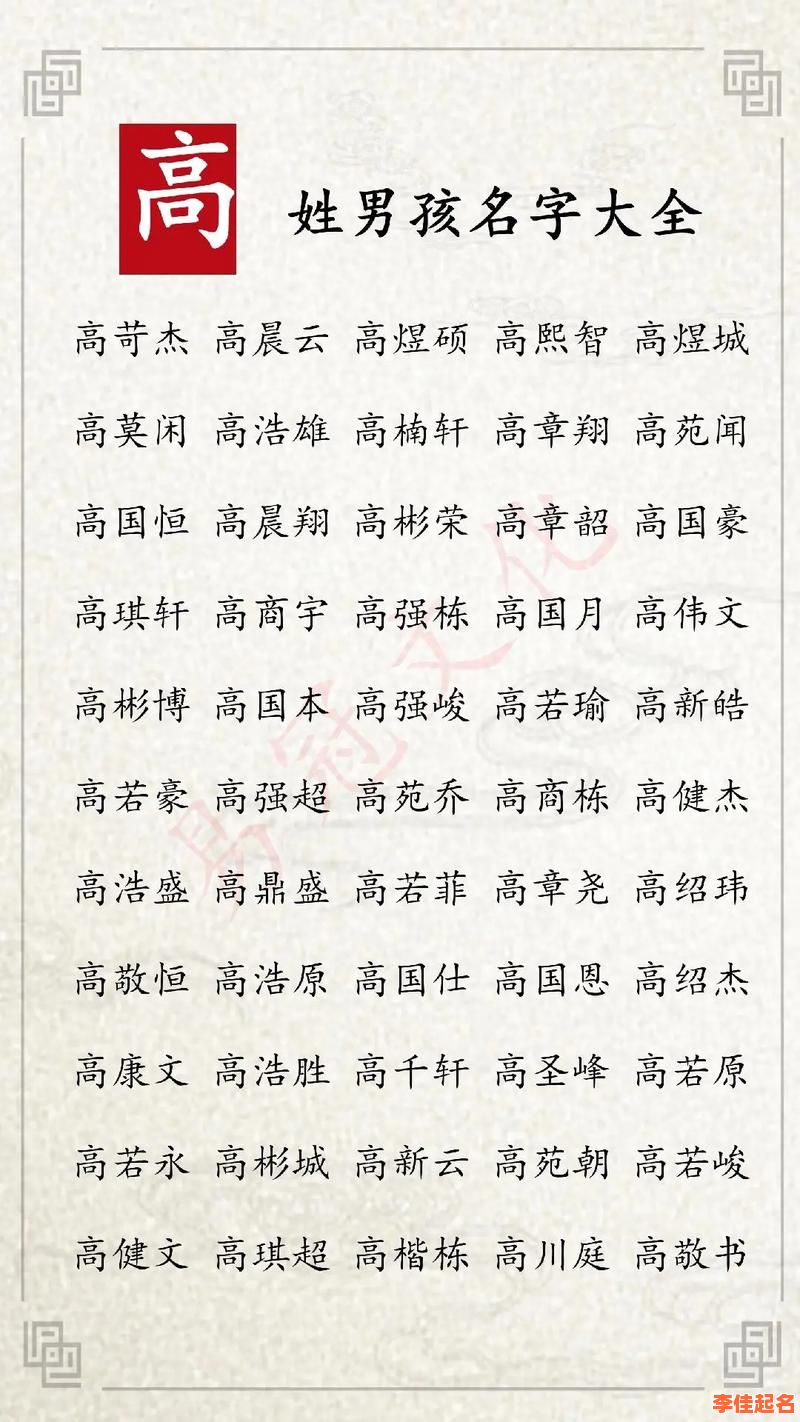 高 姓男孩名字大全
高苛杰 高晨云 高煜硕 高熙智 高煜城
高莫闲 高浩雄 高楠轩 高章翔 高苑闻
高国恒 高晨翔 高彬荣 高章韶 高国豪
高琪轩 高商宇 高强栋 高国月 高伟文
高彬博 高国本 高强峻 高若瑜 高新皓
高若豪 高强超 高苑乔 高商栋 高健杰
高浩盛 高鼎盛 高若菲 高章尧 高绍玮
高敬恒 高浩原 高国仕 高国恩 高绍杰
高康文 高浩胜 高千轩 高圣峰 高若原
高若永 高彬城 高新云 高苑朝 高若峻
高健文 高琪超 高楷栋 高川庭 高敬书
李佳起名